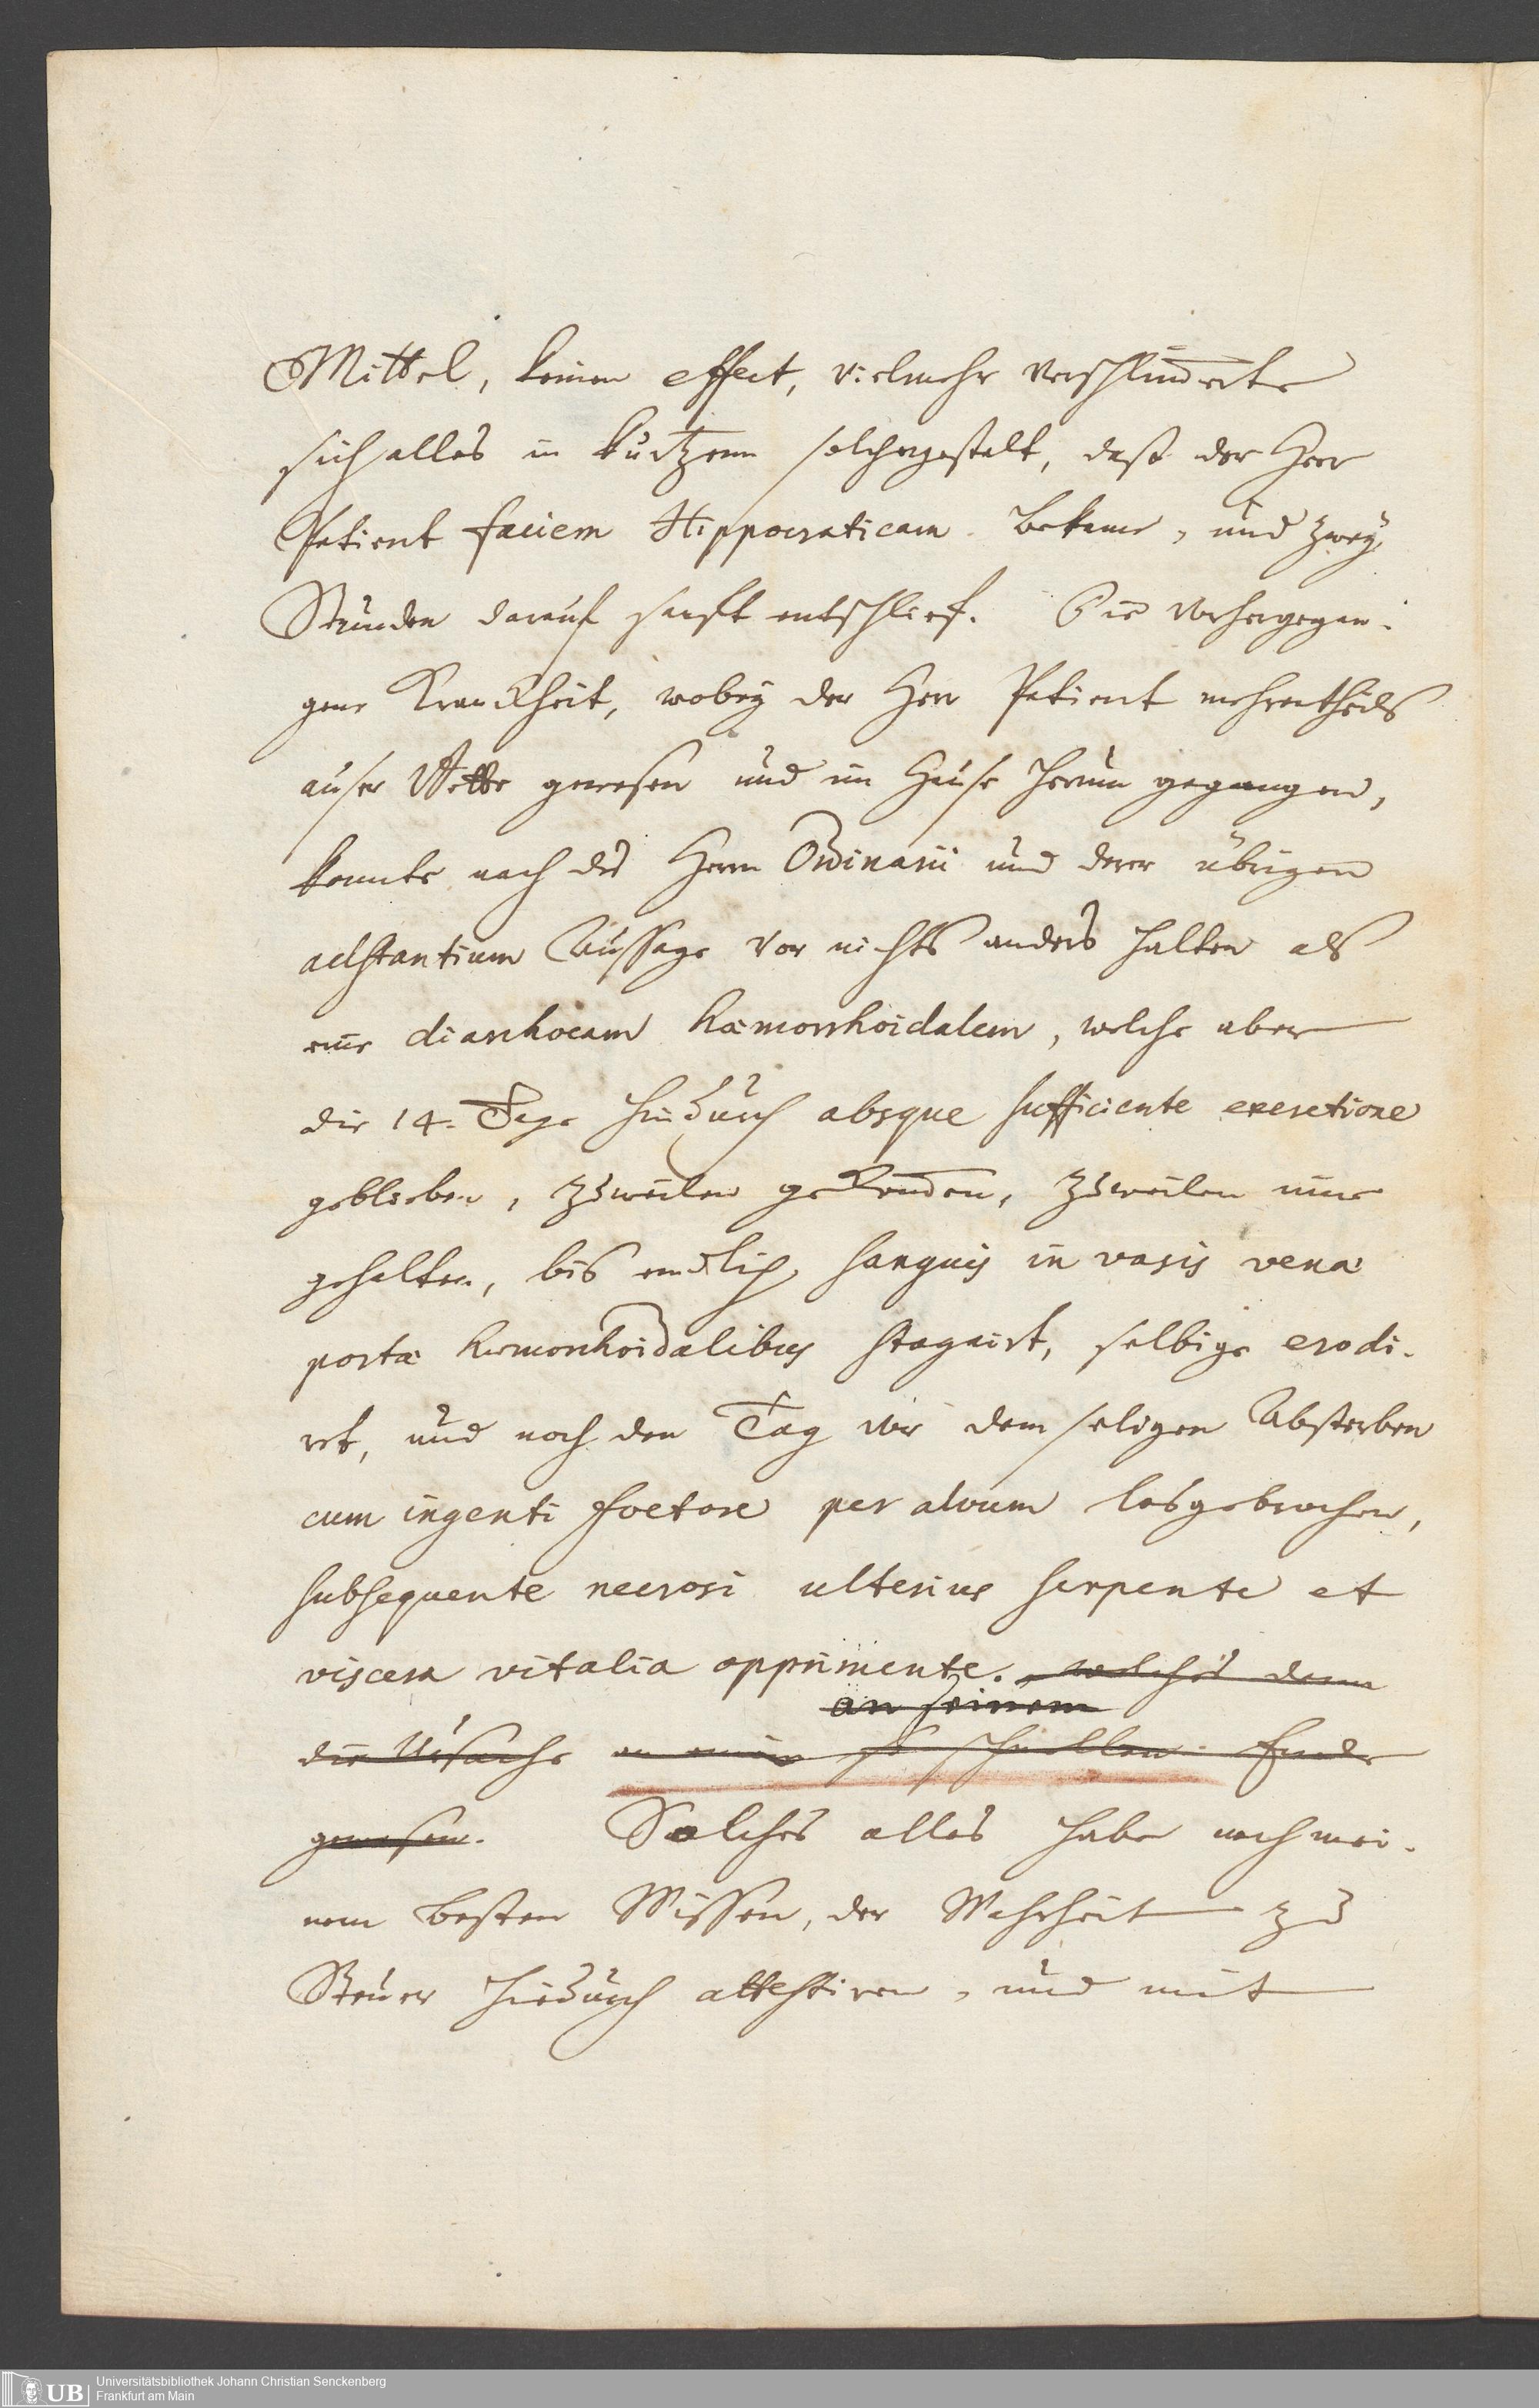 Mittel, keinen effect, vielmehr verschlim̄erte
sich alles in kurtzem solchergestalt, daß der Herr
Patient faciem Hippocraticam bekame, und zwey
Stunden darauf sanft entschlief. Die vorhergegan-
gene Kranckheit, wobey der Herr Patient mehrentheils
auser Bette gewesen und im Hause herum gegangen,
konnte nach des Herrn Ordinarii und derer übrigen
adstantium Aussage vor nichts anders halten als
eine diarrhoeam haemorrhoidalem, welche aber
die 14. Tage hindurch absque sufficiente excretione
geblieben, zuweilen inne
gehalten, bis endlich sanguis in vasis venae
portae haemorrhoidalibus stagnirt, selbige erodi-
ret, und noch den Tag vor dem seligen Absterben
cum ingenti foetore per alvum losgebrochen,
subsequente necrosi ulterius serpente et
viscera vitalia opprimente. welches dann
an seinem
die Ursache an einem so schnellen Ende
gewesen. Solches alles habe nach mei-
nem besten Wissen, der Wahrheit zu
Steuer hierdurch attestiren, und mit
Universitätsbibliothek Johann Christian Senckenberg
Frankfurt am Main
UB